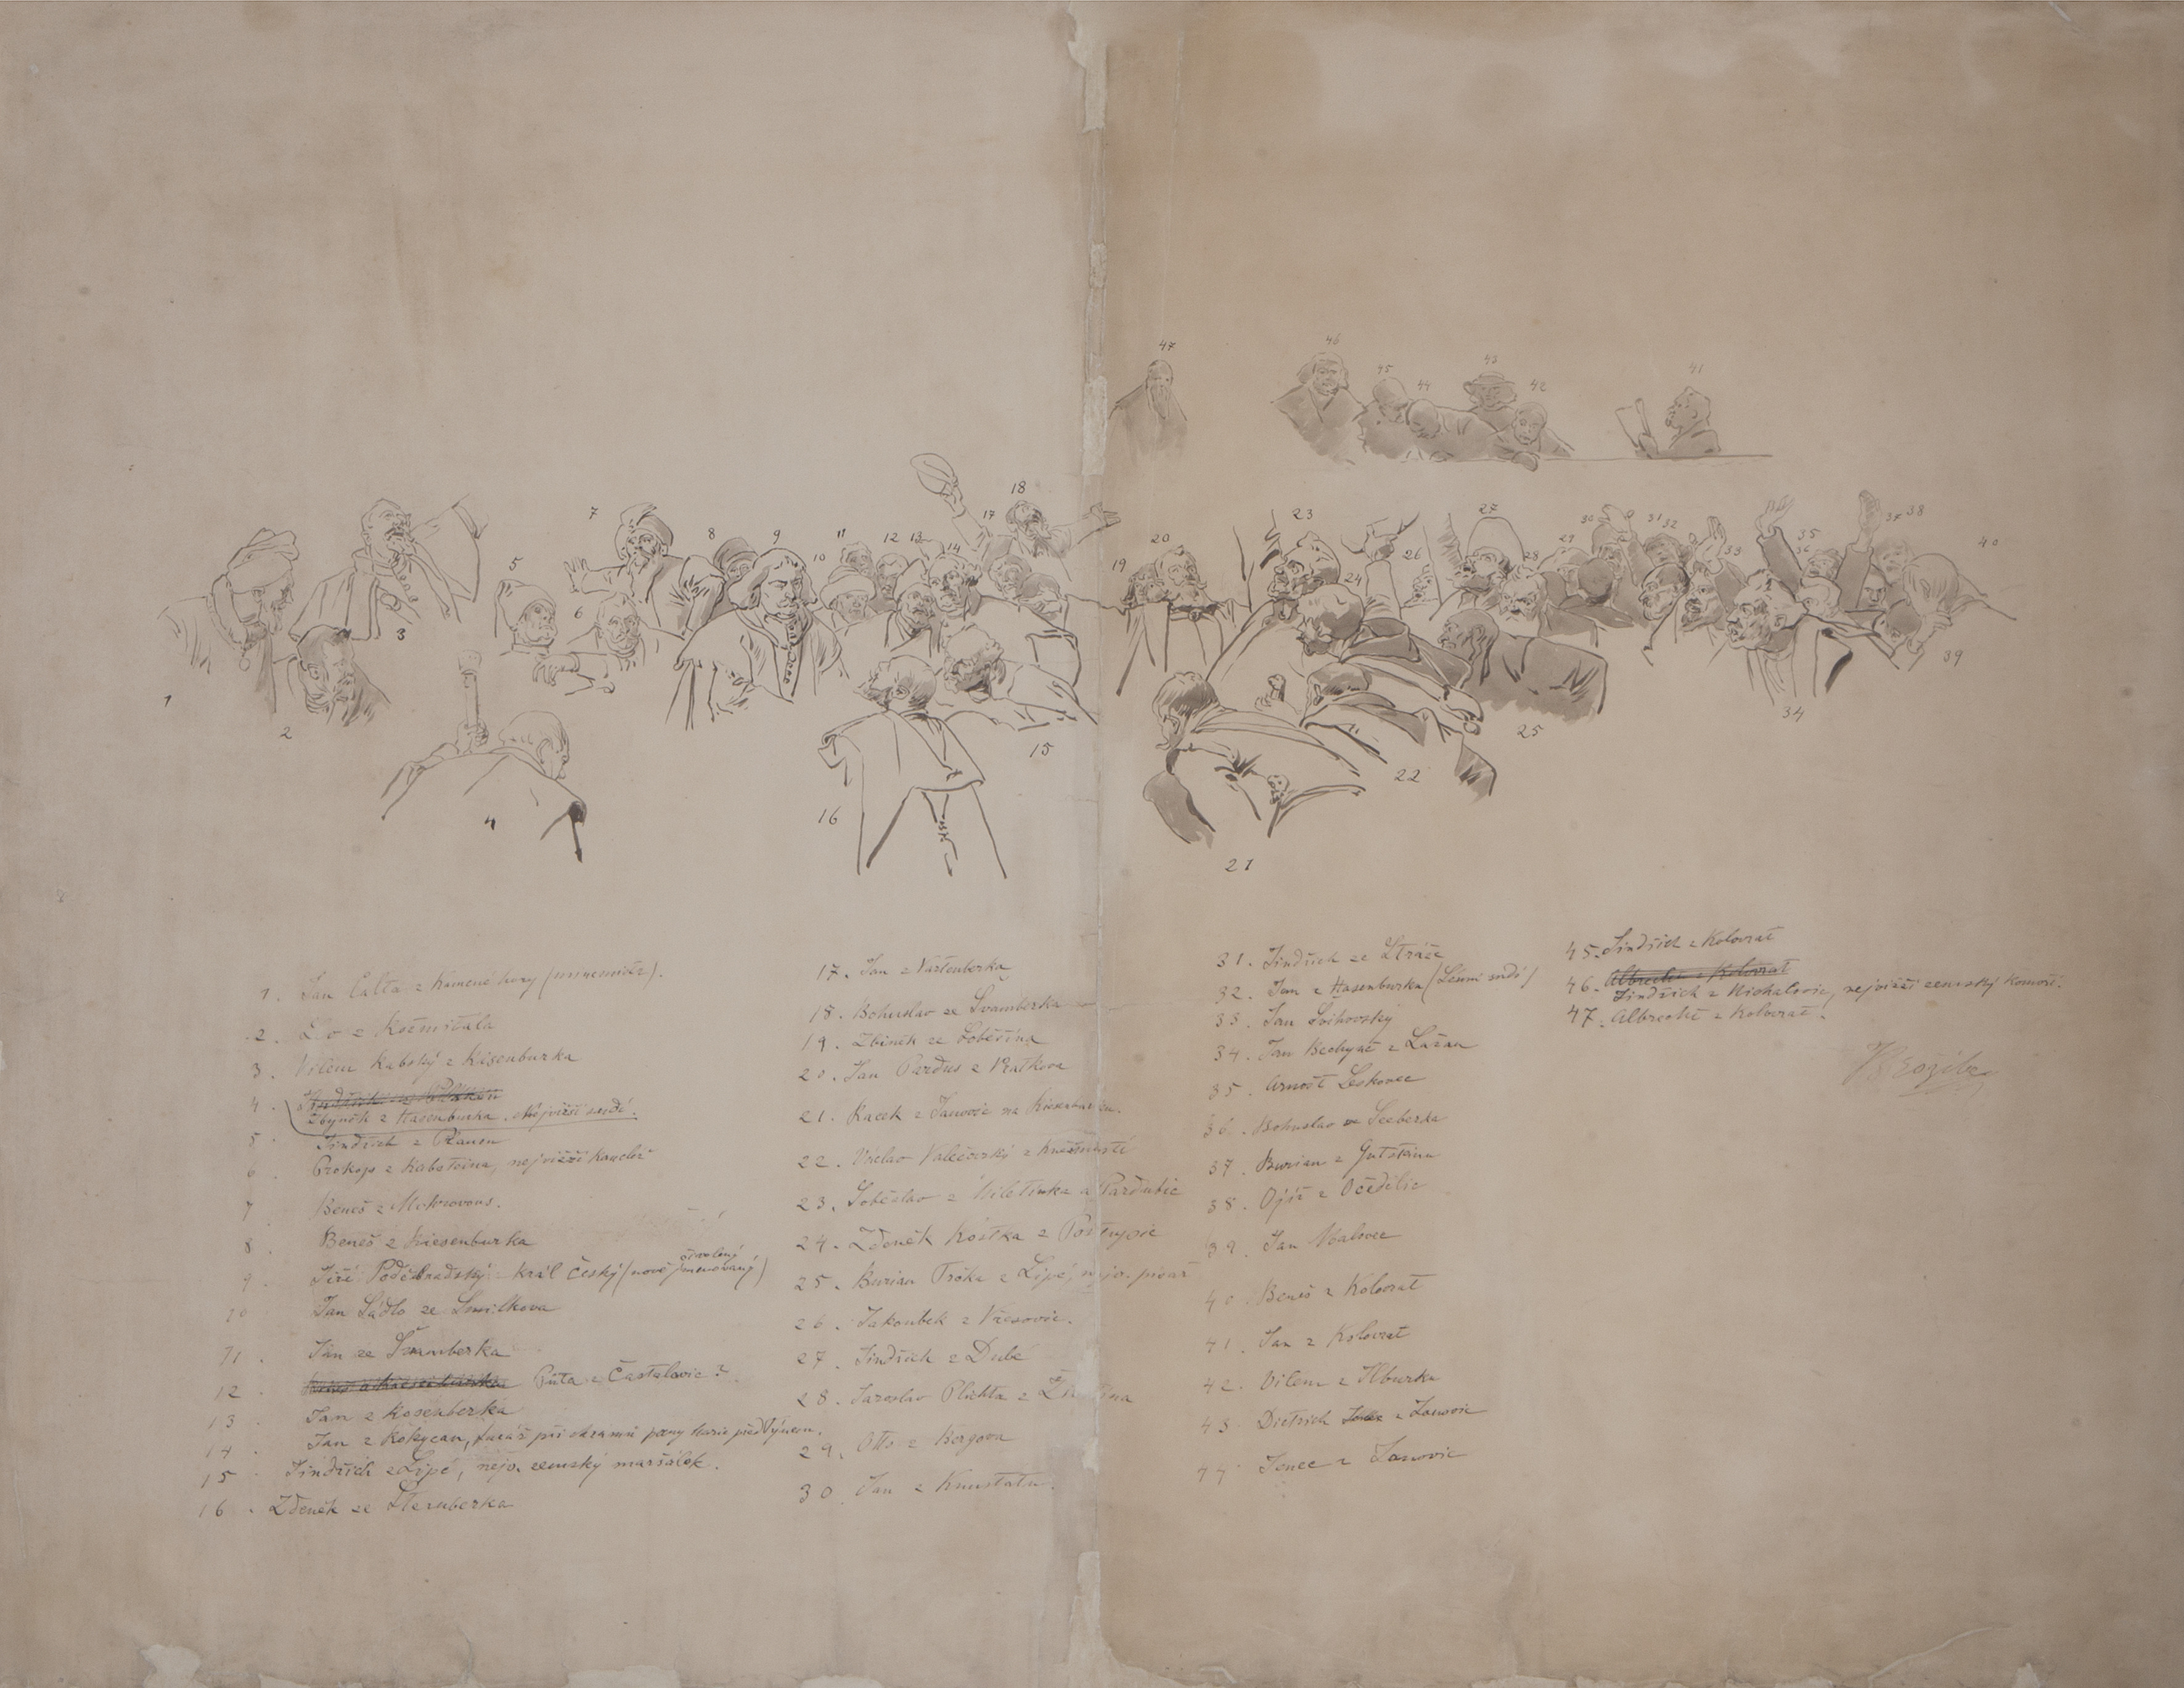 47
46
45
44
43
42
41
18
17
7
8
9
10
11
12
13
14
5
6
3
1
2
4
15
16
19
20
23
24
26
27
28
29
30
31
32
33
35
36
37
38
40
39
34
25
22
21
1. Jan Calta z Kamené hory (mincmistr).
2. Lev z Rožmitála
3. Vilém Rabský z Risenburka
4. Zbyněk z Hasenburka. Nejvišší sudí.
5. Jindřich z Plauen
6. Prokop z Rabšteina, nejvišší kancléř
7. Beneš z Mokrovous.
8. Beneš z Riesenburka
9. Jiří Poděbradský král český (nově jmenovaný)
zvolený
10 Jan Sádlo ze Smilkova
11. Jan ze Švamberka
12. Půta z Častalovic?
13. Jan z Rosenberka
14. Jan z Rokycan, farář při chrámu panny Marie před Týnem.
15. Jindřich z Lipé, nejv. zemský maršálek.
16. Zdeněk ze Šternberka
17. Jan z Vartenberka
18. Bohuslav ze Švamberka
19. Zbiněk ze Soběšína
20. Jan Pardus z Vratkova
21. Racek z Janovic na Riesenburku.
22. Václav Valečovský z Kněžmostí
23. Soběslav z Miletínka a Pardubic
24. Zdeněk Kostka z Postupic
25. Burian Trčka z Lipé, nejv. písař
26. Jakoubek z Vřesovic.
27. Jindřich z Dubé
28. Jaroslav Plichta z
29. Otto z Bergova
30. Jan z Kunstatu.
31. Jindřich ze Stráže
32. Jan z Hasenburka (Lenní sudí)
33. Jan Švihovský
34. Jan Bechyně z Lažan
35. Arnošt Leskovec
36. Bohuslav ze Seeberka
37. Burian z Gutšteinu
38. Ojíř z Očedělic
39. Jan Malovec
40. Beneš z Kolovrat
41. Jan z Kolovrat
42. Vilém z Ilburka
43. Dietrich z Janovic
44. Jenec z Janovic
45. Jindřich z Kolovrat
46. Albrecht z Kolovrat
Jindřich z Michalovic, nejvišší zemský komoří.
47. Albrecht z Kolovrat.
VBrožík